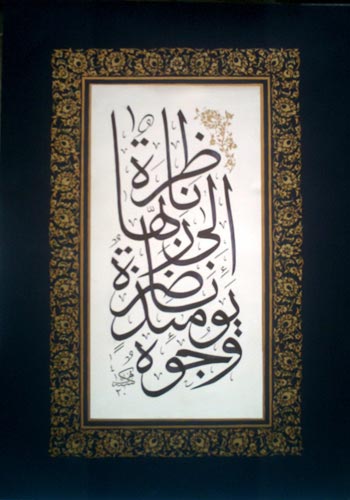 وجوه
يومئذ
ناضرة
إلى ربّها
ناظرة